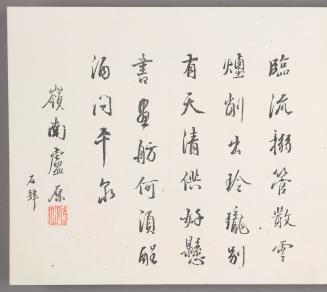 臨流搦管散雲
煙削出玲瓏別
有天清供好懸
書畫舫何須醒
酒問平泉
嶺南盧原
石辥